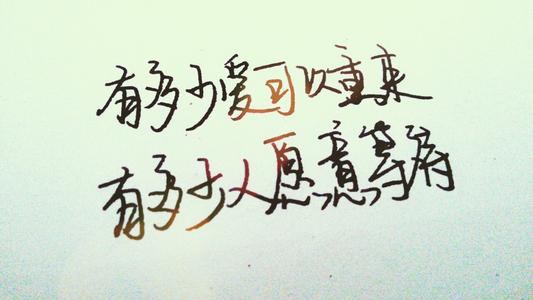 有多少爱可以重来
有多少人愿意等待